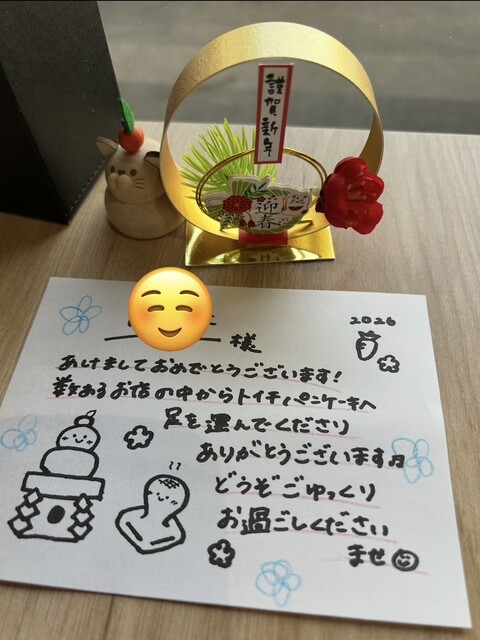 謹賀新年
迎春
様
2026
あけましておめでとうございます!
数あるお店の中からトイチパンケーキへ
足を運んでくださり
ありがとうございます♬
どうぞごゆっくり
お過ごしください
ませ☺